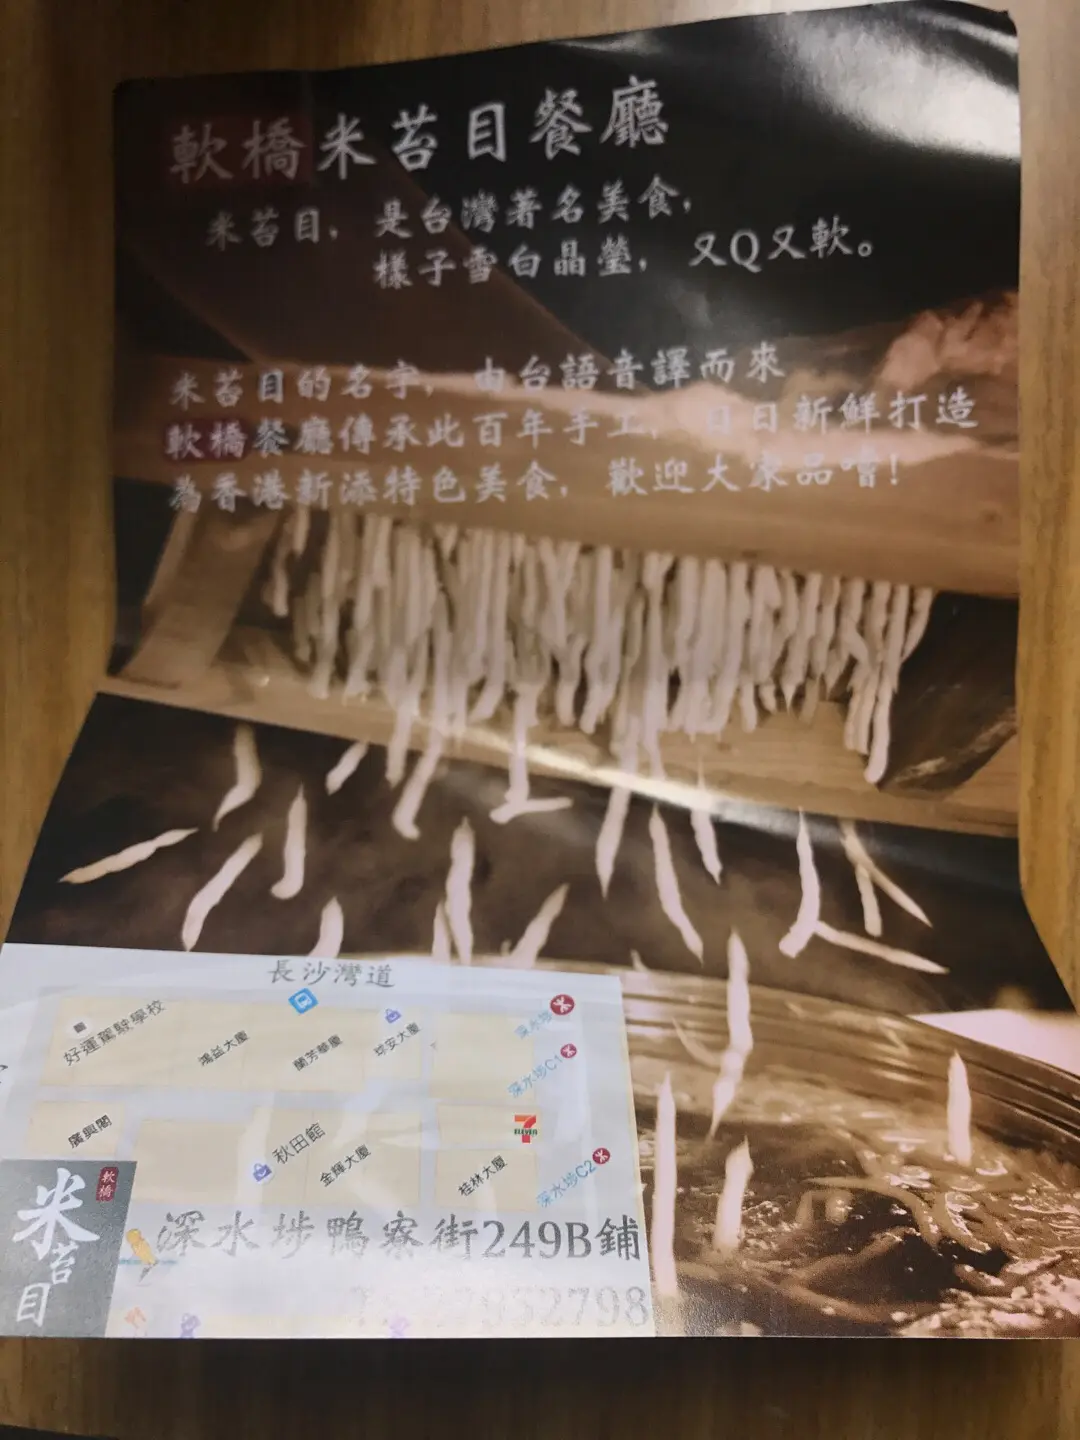 軟橋米苔目餐廳
米苔目，是台灣著名美食，
樣子雪白晶瑩，又Q又軟。
米苔目的名字，由台語音譯而來
軟橋餐廳傳承此百年手工，日日新鮮打造
為香港新添特色美食，歡迎大家品嚐！
長沙灣道
好運駕駛學校
鴻益大廈
蘭芳華廈
球安大廈
深水埗
深水埗C1
廣興閣
秋田館
金輝大廈
7
ELEVEN
桂林大廈
深水埗C2
軟橋
米苔目
深水埗鴨寮街249B鋪